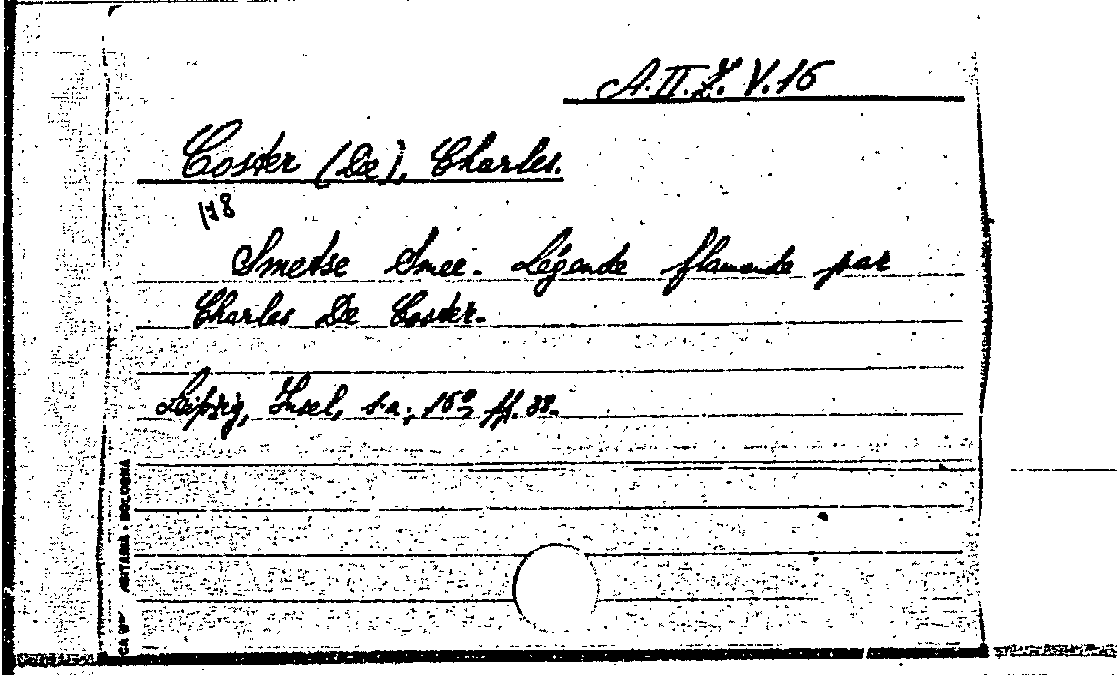 A.II.Z.V.16
Coster (De), Charles.
178
Smetse Smee. Légende flamande par
Charles De Coster.
Leipzig, Insel, s.a., 16º,